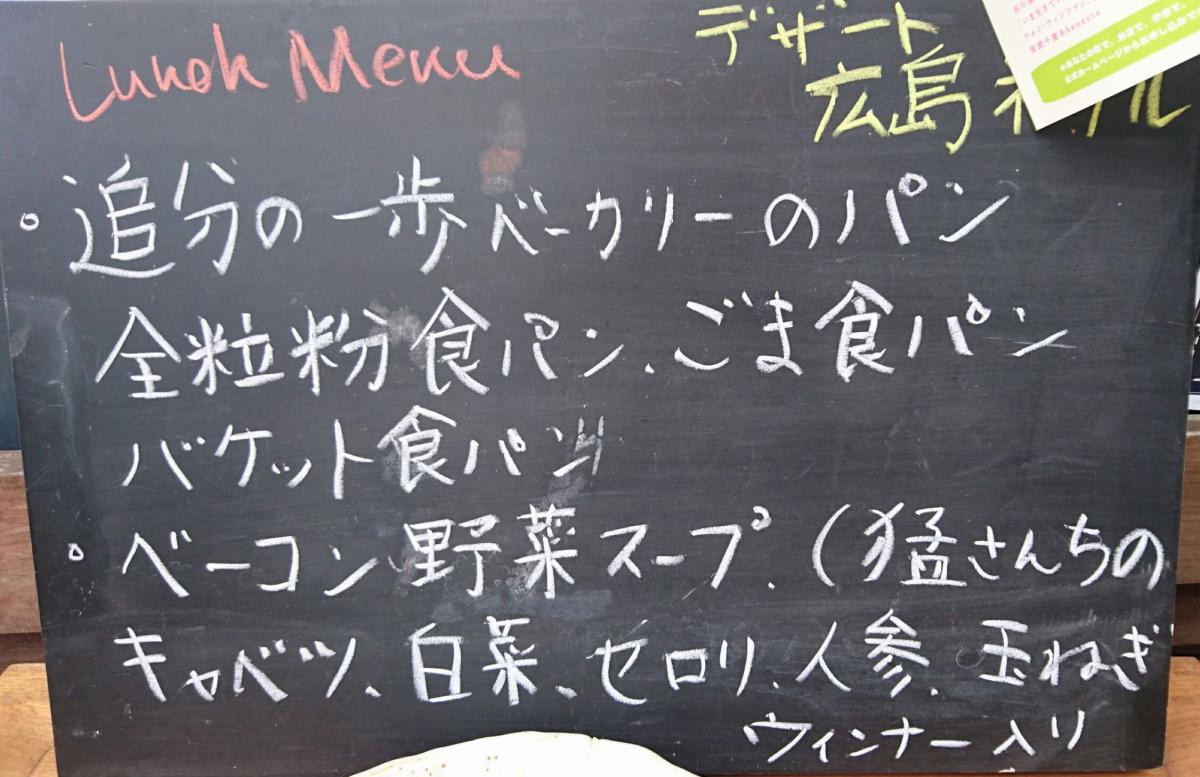 Lunch Menu
デザート
広島ネーブル
。追分の一歩ベーカリーのパン
全粒粉食パン、ごま食パン
バケット食パン
。ベーコン野菜スープ、(猛さんちの
キャベツ、白菜、セロリ、人参、玉ねぎ
ウィンナー入り
「いま生きて
ウォン・ウィンツァン